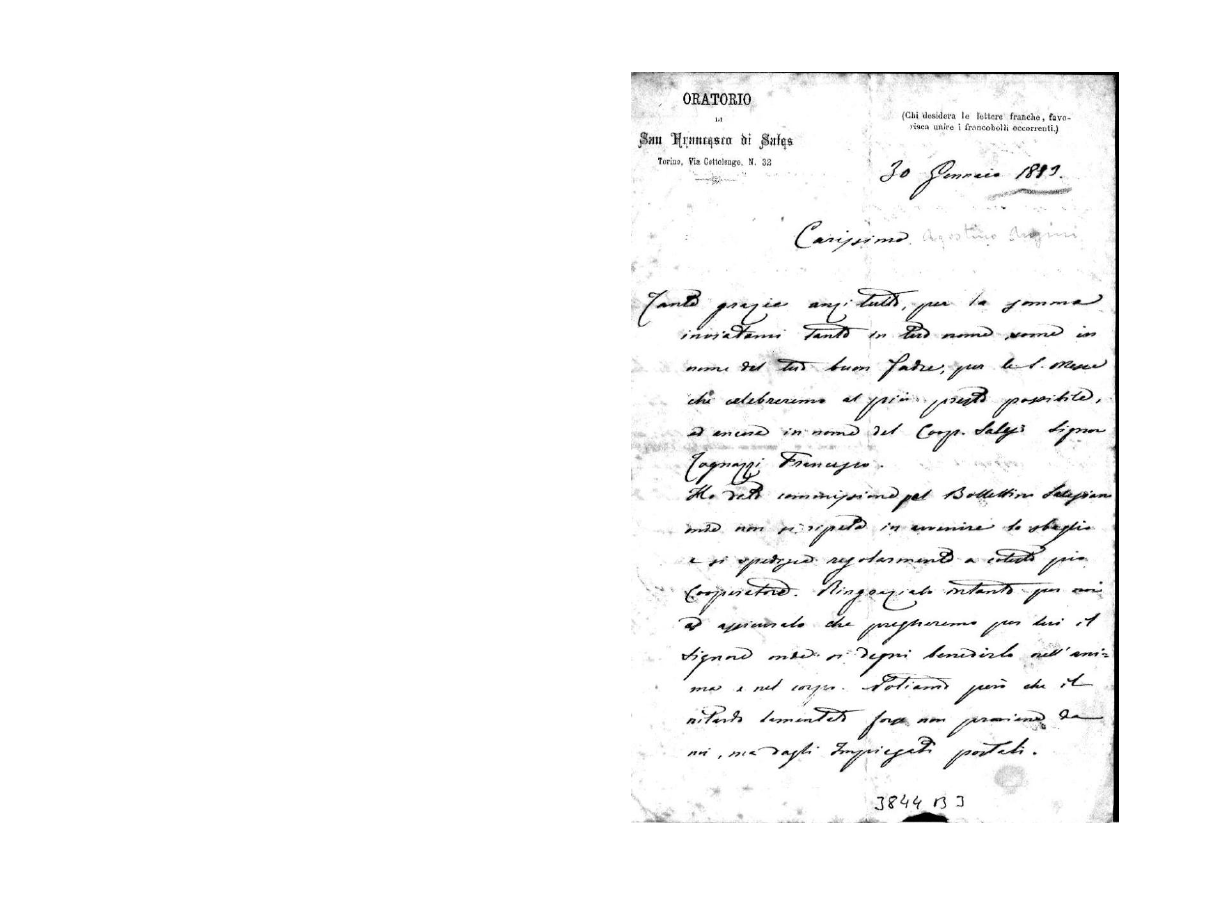 ORATORIO
DI
San Francesco di Sales
Torino, Via Cottolengo, N. 32
(Chi desidera le lettere franche, favo-
risca unire i francobolli occorrenti.)
30 Gennaio 1889.
Carissimo Agostino
Tante grazie anzi tutto, per la somma
inviatami tanto in tuo nome come in
nome del tuo buon Padre, per le S. Messe
che celebreremo al più presto possibile,
ed ancora in nome del Coop. Sales Signor
Tognazzi Francesco.
Ho dato commissione pel Bollettino Salesiano
onde non si ripeta in avvenire lo sbaglio
e si spedisca regolarmente a cotesto pio
Cooperatore. Ringrazialo intanto per noi
ed assicuralo che pregheremo per lui il
Signore onde si degni benedirlo nell'ani=
ma e nel corpo. Notiamo però che il
ritardo lamentato forse non proviene da
noi, ma dagli Impiegati postali.
3844 B 3